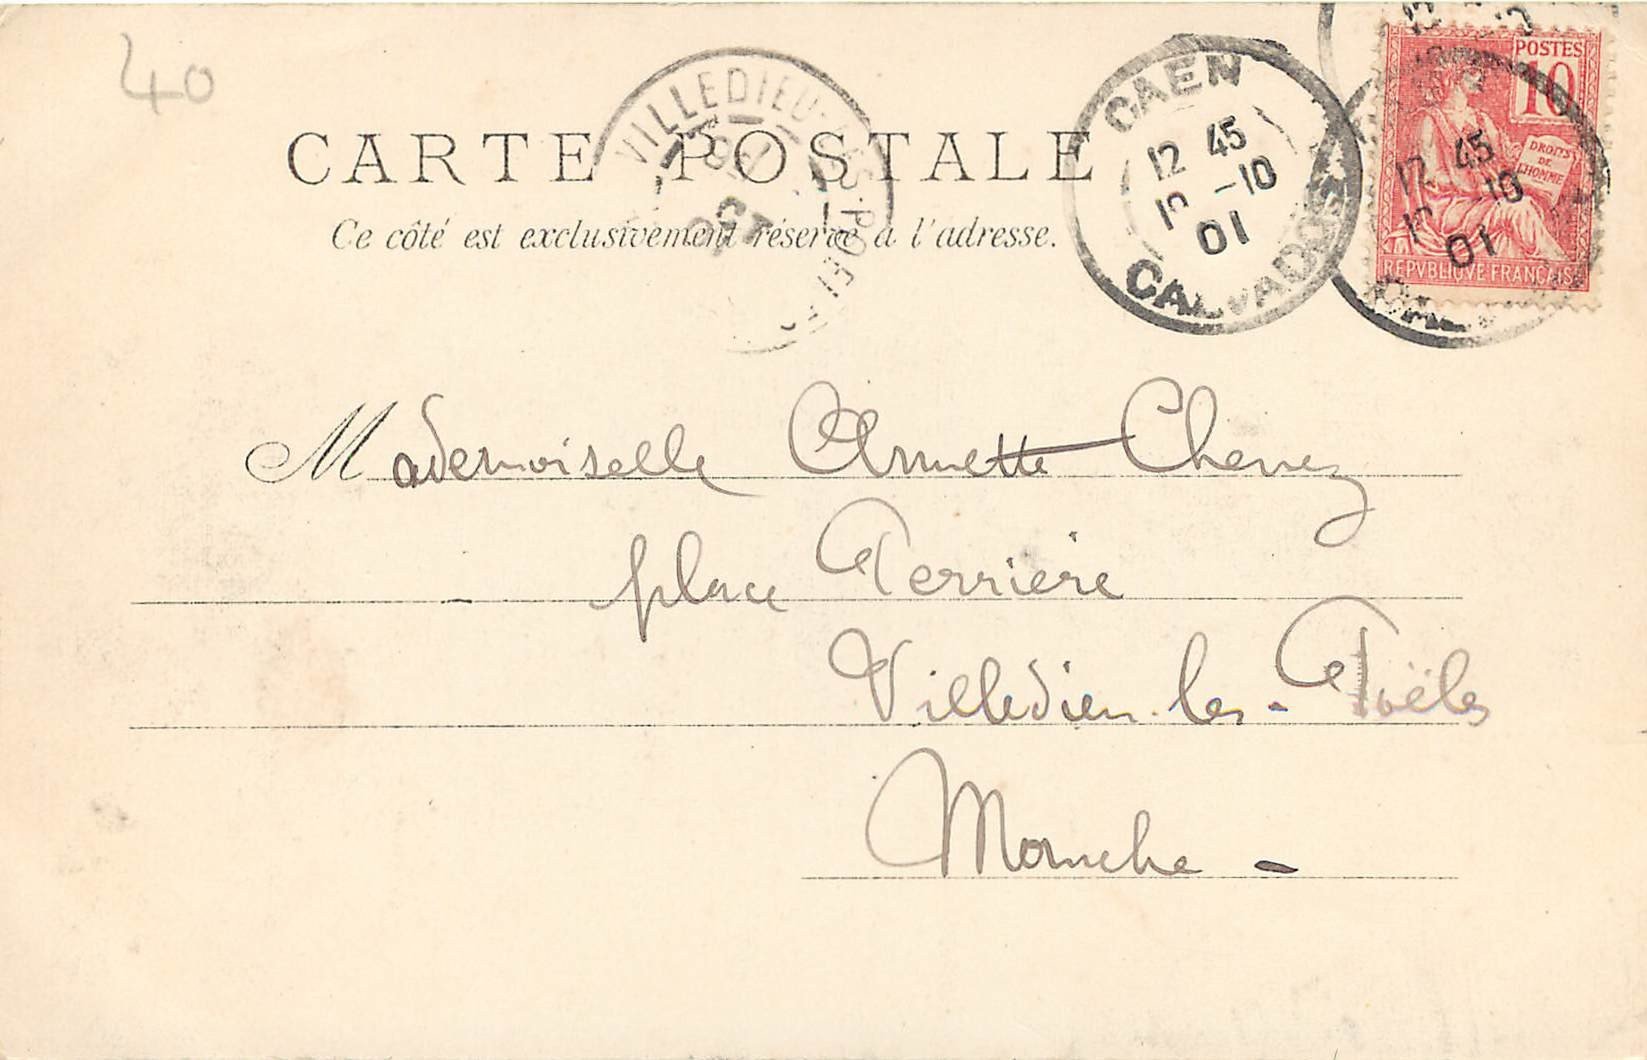 40
CARTE POSTALE
Ce côté est exclusivement réservé à l'adresse.
VILLEDIEU-LES-POELES
CAEN
12 45
-10
01
CALVADOS
POSTES
10
DROITS
DE
L'HOMME
REPVBLIQVE FRANÇAISE
12 45
-10
01
Mademoiselle Annette
place Ferrière
Villedieu-les-Poëles
Manche -